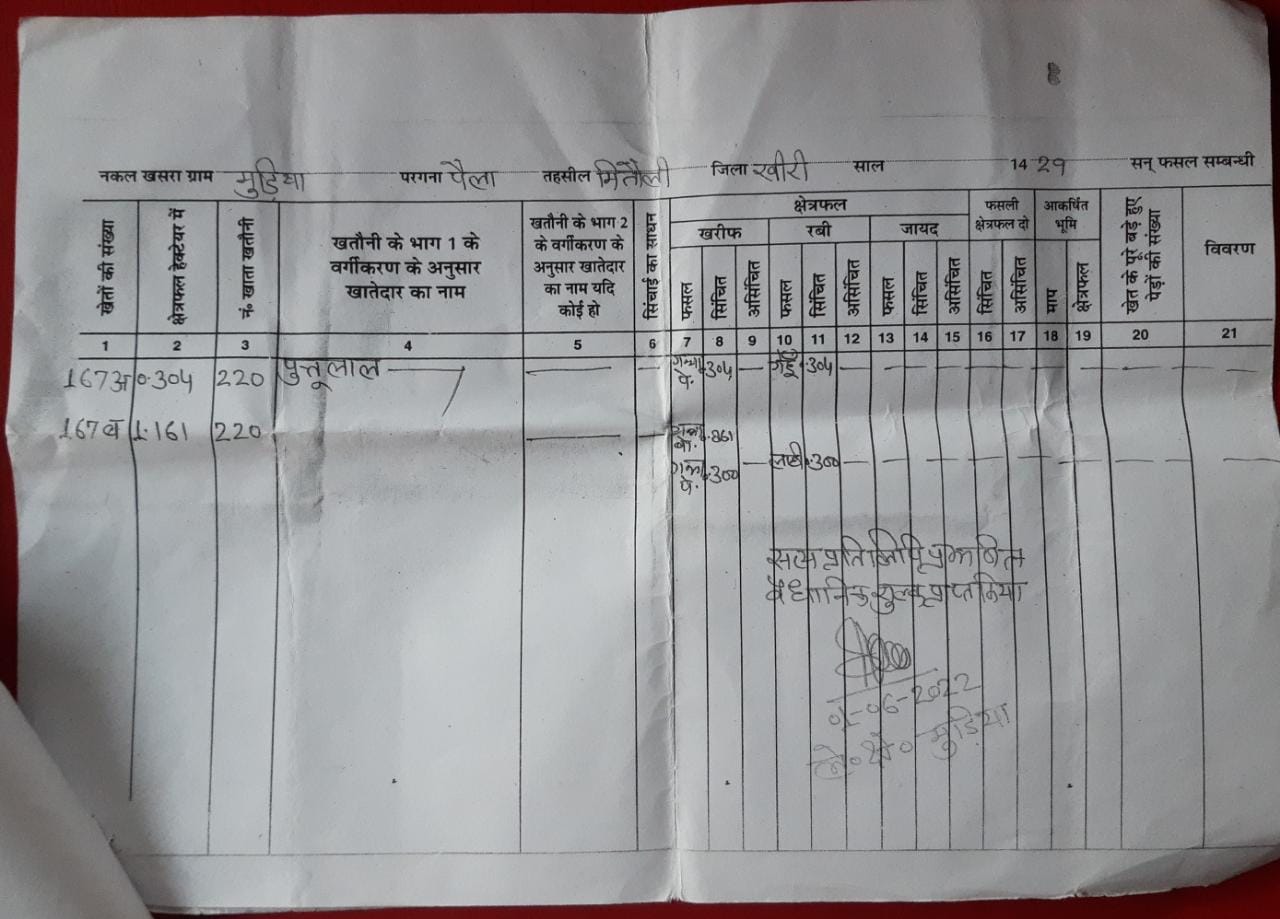 नकल खसरा ग्राम मुड़िया परगना पैला तहसील मितौली जिला खीरी साल 1429 सन् फसल सम्बन्धी
खेतों की संख्या
क्षेत्रफल हेक्टेयर में
नं० खाता खतौनी
खतौनी के भाग 1 के
वर्गीकरण के अनुसार
खातेदार का नाम
खतौनी के भाग 2
के वर्गीकरण के
अनुसार खातेदार
का नाम यदि
कोई हो
सिंचाई का साधन
क्षेत्रफल
खरीफ रबी जायद
फसल सिंचित असिंचित फसल सिंचित असिंचित फसल सिंचित असिंचित
फसली
क्षेत्रफल दो
सिंचित असिंचित
आकर्षित
भूमि
माप क्षेत्रफल
खेत के पूर बड़े हुए
पेड़ों की संख्या
विवरण
1 2 3 4 5 6 7 8 9 10 11 12 13 14 15 16 17 18 19 20 21
167अ 0.304 220 पुत्तूलाल गन्ना पे. .304 गेहूँ .304
167ब 1.161 220 गन्ना .861
गन्ना पे. .300 लाही .300
सत्य प्रतिलिपि प्रमाणित
वैधानिक शुल्क प्राप्त किया
01-06-2022
ले० क्षे० मुड़िया